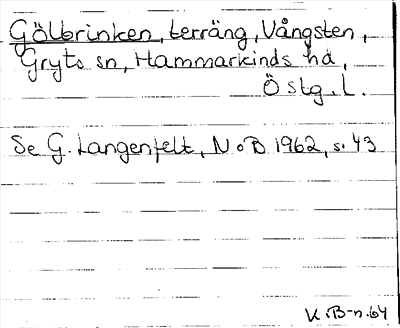 Gölbrinken, terräng, Vångsten,
Gryts sn, Hammarkinds hd,
Östg. l.
Se G. Langenfelt, NoB 1962, s. 43
K.B-n.64